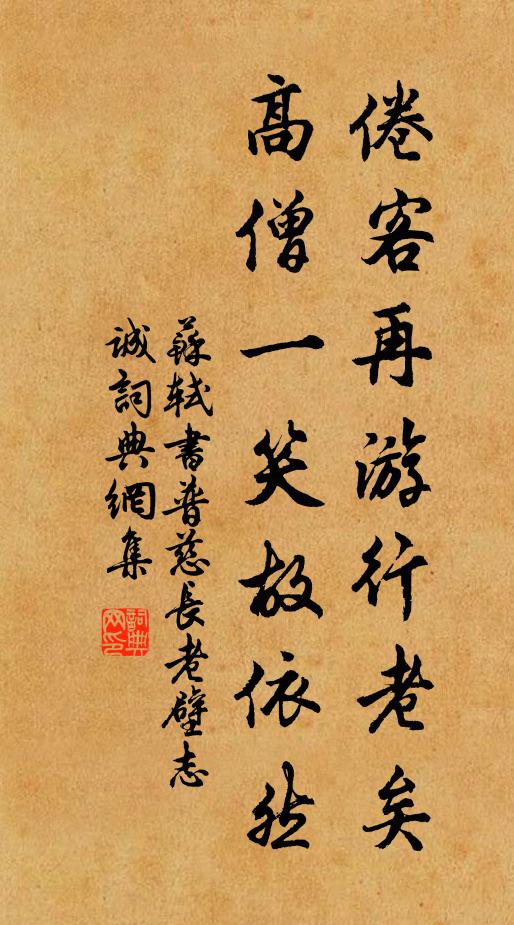 倦客再游行老矣
高僧一笑故依然
蘇軾書普慈長老壁志
誠詞典網集
詞典网印